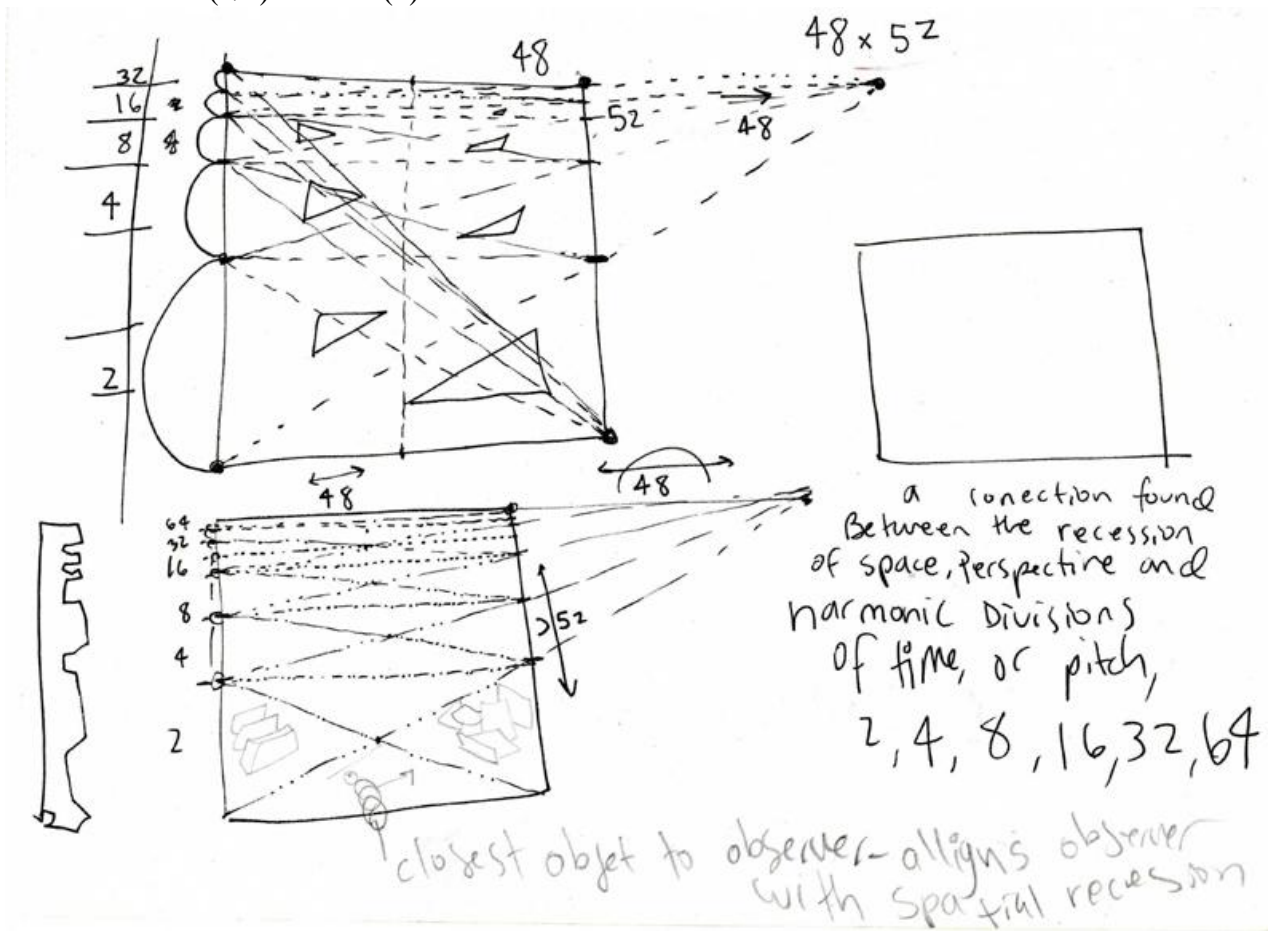 48
48 x 52
32
16
8 8
4
2
52
48
48
48
a conection found
Between the recession
of space, Perspective and
harmonic Divisions
of time, or pitch,
2, 4, 8, 16, 32, 64
64
32
16
8
4
2
52
closest objet to observer- alligns observer
with spatial recession